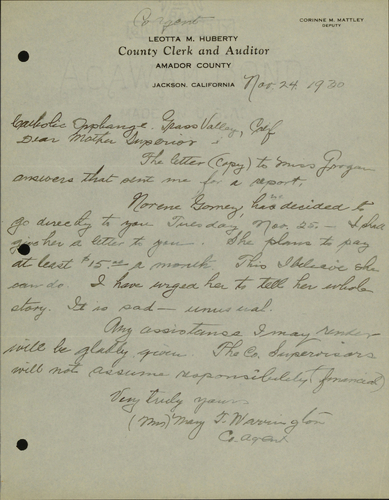 Co. agent
CORINNE M. MATTLEY
DEPUTY
LEOTTA M. HUBERTY
County Clerk and Auditor
AMADOR COUNTY
JACKSON, CALIFORNIA
Nov. 24, 1930
Catholic Orphange. Grass Valley, Calif
Dear Mother Superior:
The letter (copy) to Miss
answers that sent me for a report.
Norene Gomez, has decided to
go directly to you Tuesday Nov. 25 — I shall
give her a letter to you. She plans to pay
at least $15.00 a month. This I believe she
can do. I have urged her to tell her whole
story. It is sad — unusual.
Any assistance I may render
will be gladly given. The Co. Supervisors
will not assume responsibility (financial)
Very truly yours
(Mrs) Mary T. Warrington
Co. agent